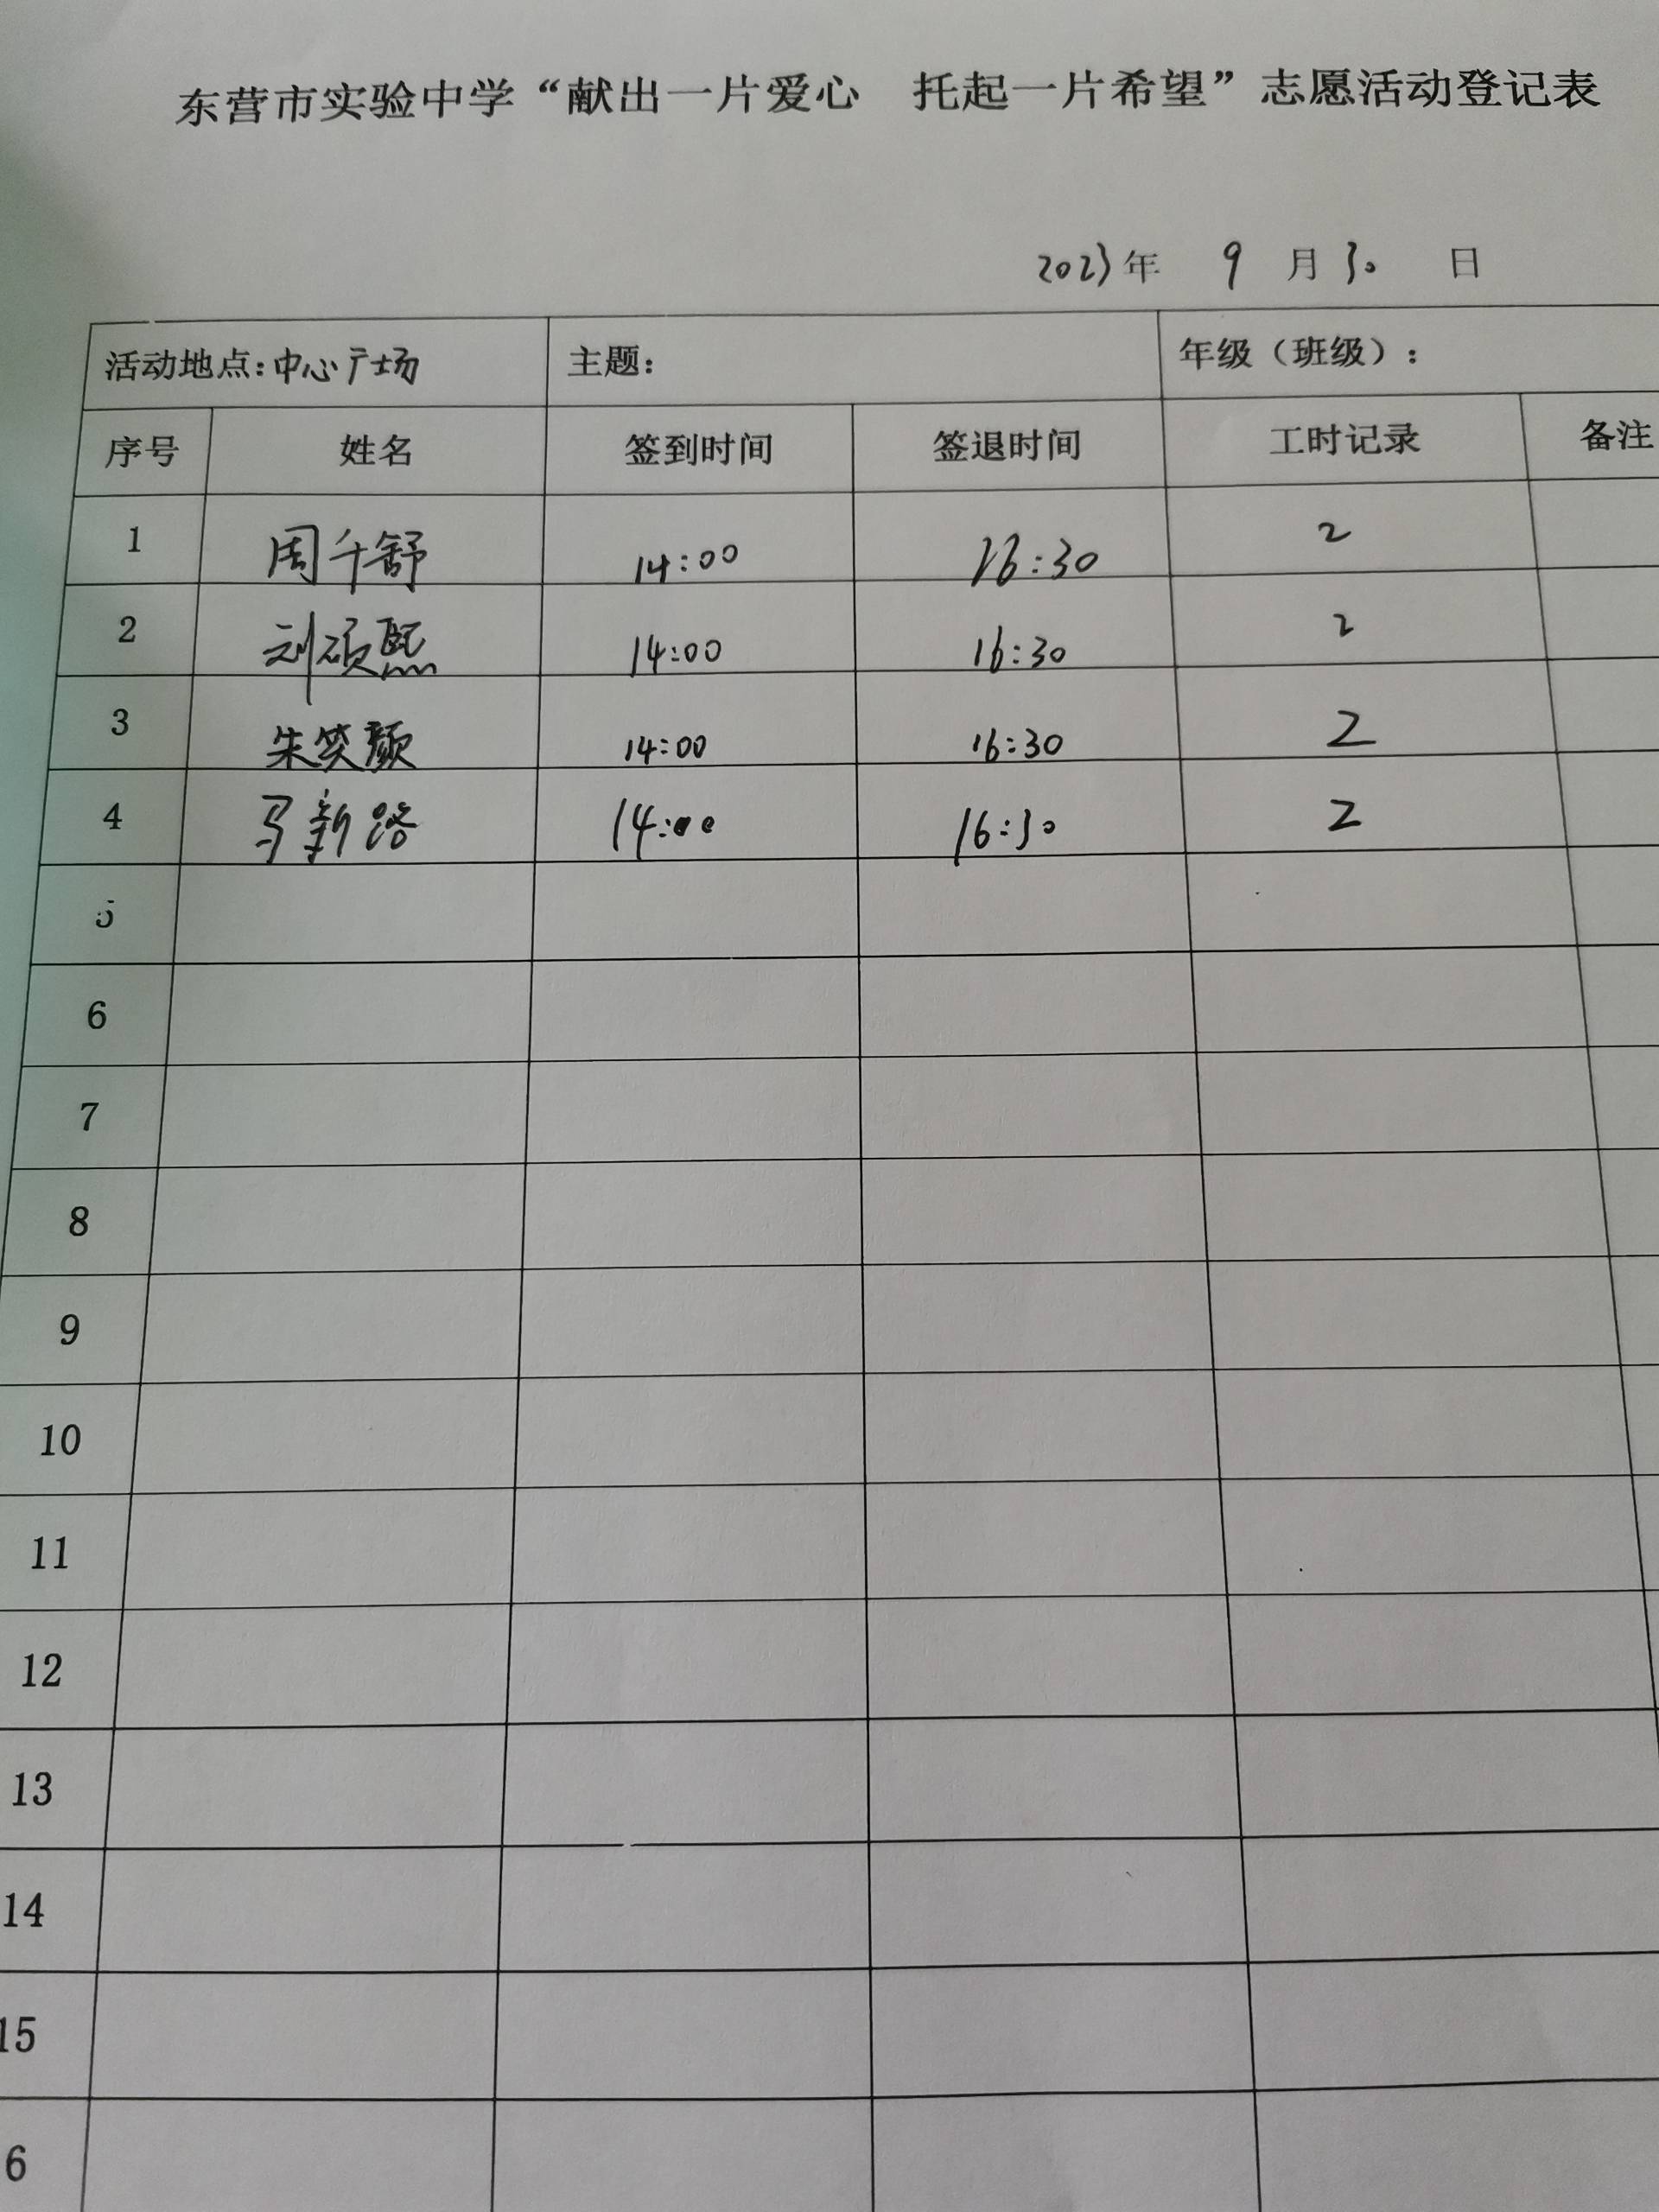 东营市实验中学“献出一片爱心 托起一片希望”志愿活动登记表
2023年 9 月 30 日
活动地点:中心广场 主题: 年级（班级）:
序号 姓名 签到时间 签退时间 工时记录 备注
1 周千舒 14:00 16:30 2
2 刘硕熙 14:00 16:30 2
3 朱笑颜 14:00 16:30 2
4 马新 14:00 16:30 2
5
6
7
8
9
10
11
12
13
14
15
6